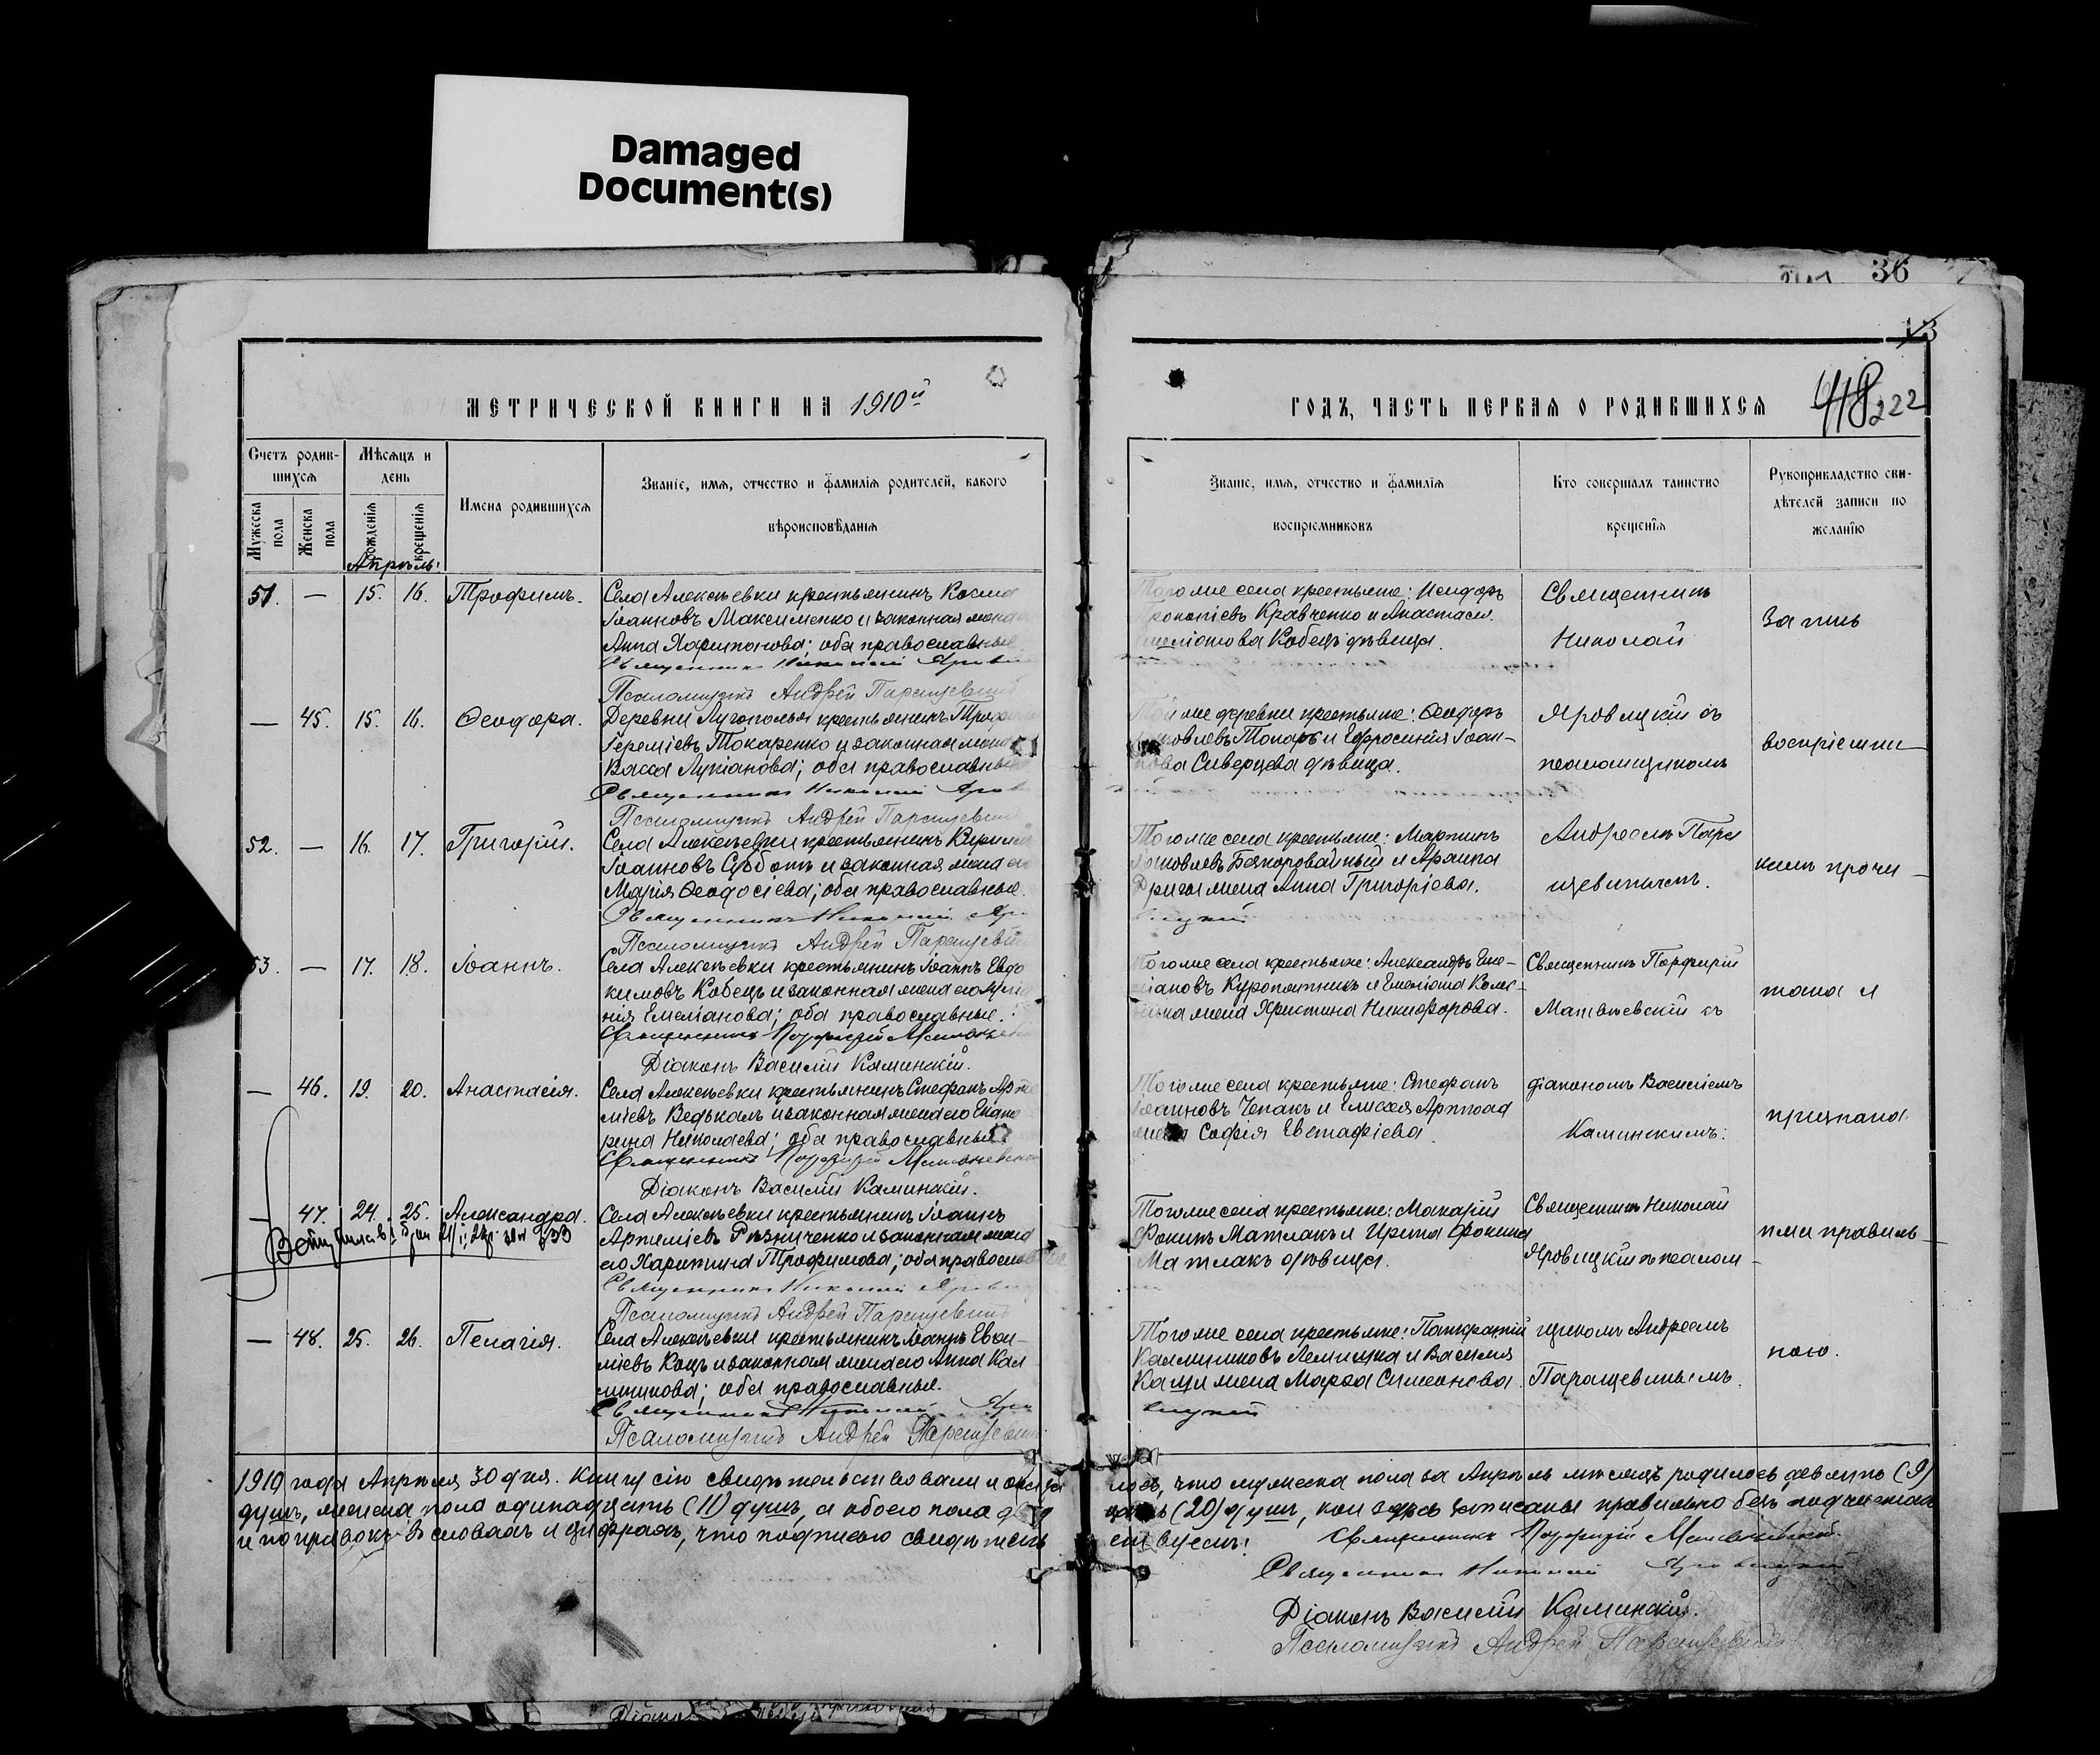 Damaged
Document(s)
36
13
МЕТРИЧЕСКОЙ КНИГИ НА 1910й
ГОДЪ, ЧАСТЬ ПЕРВАЯ О РОДИВШИХСЯ
418 222
Счетъ родив-
шихся
Мѣсяцъ и
день
Мужеска
пола
Женска
пола
рожденія
крещенія
Имена родившихся
Званіе, имя, отчество и фамилія родителей, какого
вѣроисповѣданія
Званіе, имя, отчество и фамилія
воспріемниковъ
Кто совершалъ таинство
крещенія
Рукоприкладство сви-
дѣтелей записи по
желанію
Апрѣль:
51. — 15. 16. Трофимъ. Села Алексѣевки крестьянинъ Косма
Іоанновъ Максименко и законная жена
Анна Харитонова; оба православные.
Священникъ Николай
Псаломщикъ Андрей Паращевин
Того же села крестьяне: Исидоръ
Прокопіевъ Кравченко и Анастасія
Кобецъ дѣвица.
Священникъ
Николай
Запись
— 45. 15. 16. Ѳеодора. Деревни Лугополья крестьянинъ Троф
Іереміевъ Токаренко и законная жена
Васса Лукіанова; оба православные
Священникъ Николай
Псаломщикъ Андрей Паращевин
Той же деревни крестьяне: Ѳеодоръ
Токарь и Ефросинія Іоан-
нова Сиверцева дѣвица.
Яровицкій съ
псаломщикомъ
воспріемни-
52. — 16. 17. Григорій. Села Алексѣевки крестьянинъ Кирилл
Іоанновъ Субботъ и законная жена его
Марія Ѳеодосіева; оба православные.
Священникъ Николай Яро
Псаломщикъ Андрей Паращевин
Того же села крестьяне: Мартинъ
Іаковлевъ Бѣлкоровайный и
жена Анна Григоріева.
вицкій
Андреемъ Пара
щевинымъ.
ками прочи-
53. — 17. 18. Іоаннъ. Села Алексѣевки крестьянинъ Іоаннъ Евдо
кимовъ Кобецъ и законная жена его
нія Емеліанова; оба православные.
Священникъ Порфирій
Діаконъ Василій Каминскій.
Того же села крестьяне: Александръ Еме-
ліановъ Куропятникъ и Емеліана
жена Христина Никифорова.
Священникъ Порфирій
Матвѣевскій съ
тана и
— 46. 19. 20. Анастасія. Села Алексѣевки крестьянинъ Стефанъ Арте
міевъ Ведькалъ и законная жена его Екате
рина Николаева; оба православные
Священникъ Порфирій
Діаконъ Василій Каминскій.
Того же села крестьяне: Стефанъ
Іоанновъ Чепакъ и Елисея
жена Софія Евстафіева.
діакономъ Василіемъ
Каминскимъ.
признана
— 47. 24. 25. Александра. Села Алексѣевки крестьянинъ Іоаннъ
Артеміевъ Рѣзниченко и законная жена
его Харитина Трофимова; оба православные
Священникъ Николай
Псаломщикъ Андрей Паращевин
Того же села крестьяне: Макарій
Фокинъ Матлакъ и Ирина Фокина
Матлакъ дѣвица.
Священникъ Николай
Яровицкій съ псалом-
ими правиль-
— 48. 25. 26. Пелагія. Села Алексѣевки крестьянинъ Іоаннъ Евѳи-
міевъ Коцъ и законная жена его Анна Кал
линикова; оба православные.
Священникъ Николай Яро
Псаломщикъ Андрей Паращевин
Того же села крестьяне: Панкратій
Каллиниковъ Лемишка и Василія
жена Марѳа Симеонова.
вицкій
щикомъ Андреемъ
Паращевинымъ.
ною.
1910 года Апрѣля 30 дня. Книгу сію свидѣтельствовали и оказа
лось, что мужеска пола за Апрѣль мѣсяцъ родилось девять (9)
душъ, женска пола одинадцать (11) душъ, а обоего пола
(20) душъ, кои здѣсь записаны правильно безъ подчистокъ
и поправокъ въ словахъ и цифрахъ, что подписью свидѣтель
ствуемъ:
Священникъ Порфирій Матвѣевскій.
Священникъ Николай Яровицкій
Діаконъ Василій Каминскій.
Псаломщикъ Андрей Паращевинъ